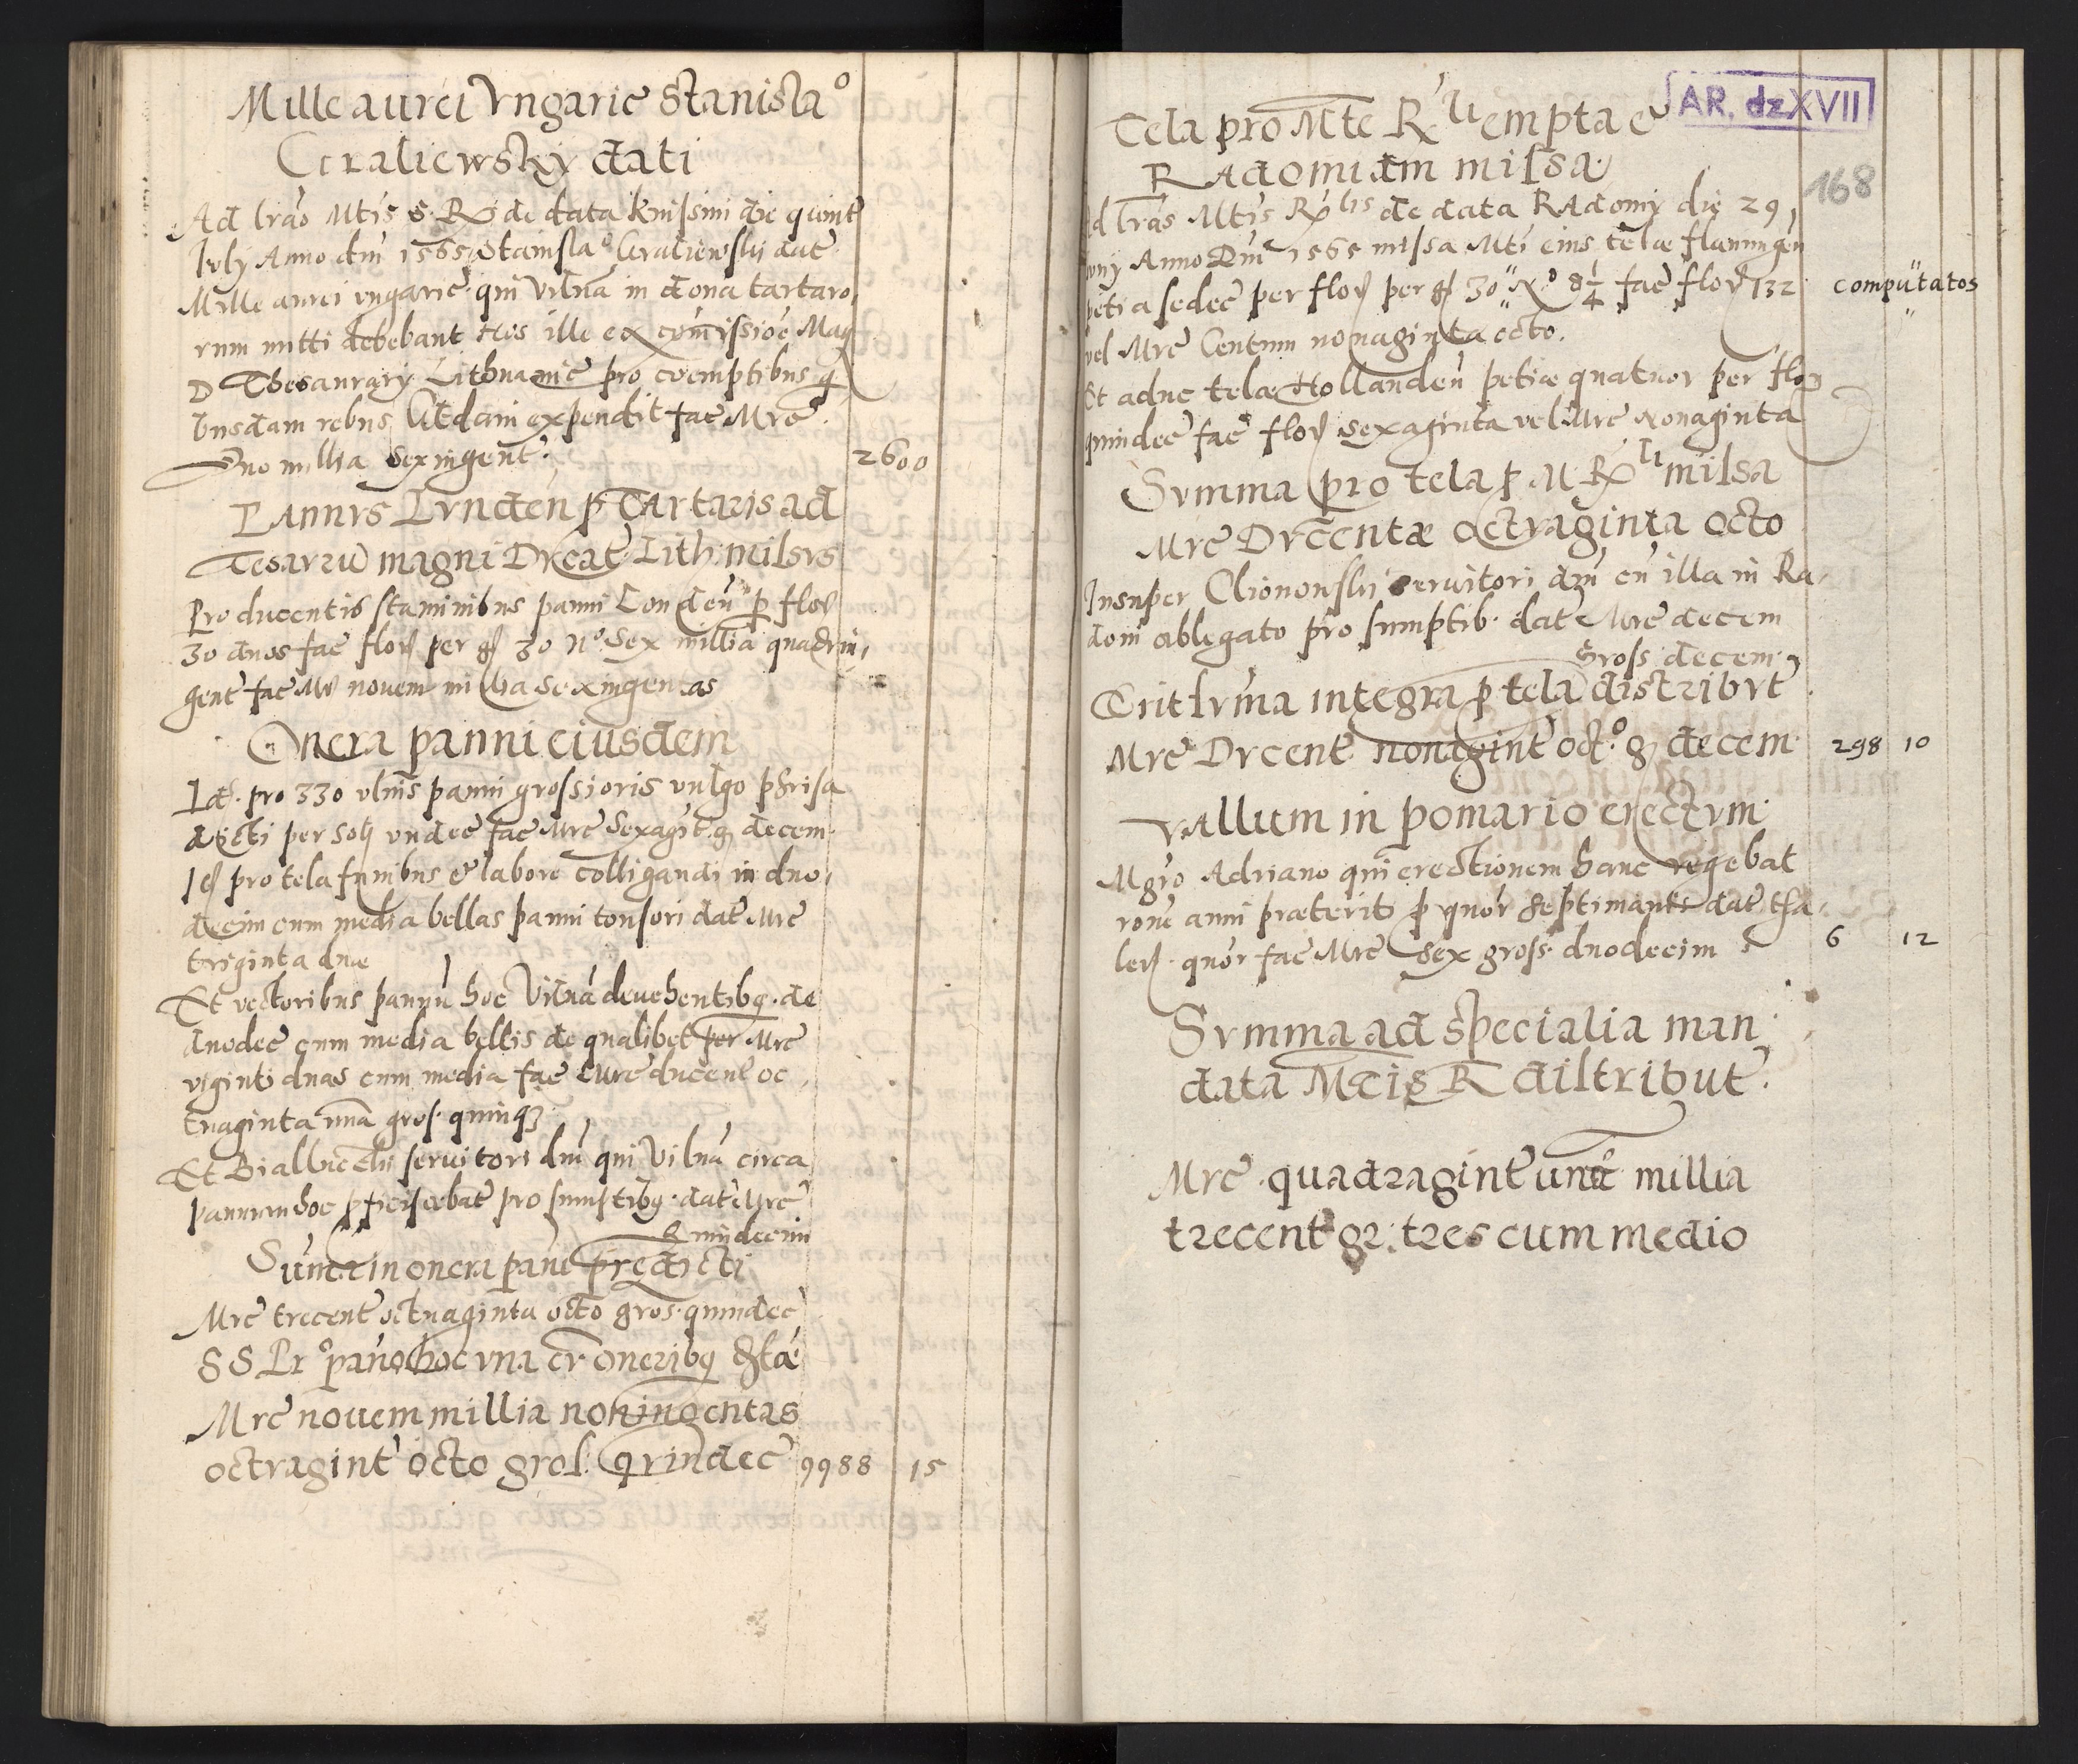 Mille aurei Vngarie Stanisla°
Craliewsky dati
Ad lrãs Mtis S. R. de data Knissini die quint
July Anno dm̃ 1565 Stanisla° Craliewsky dat
Mille aurei vngarie qui Vilnã in dona tartaro,
rum mitti debebant Hos ille ex com̃issioe Mag
D Thesaurary Lithuanie pro coemptibus q
busdam rebus expendit fac Mrc.
Duo millia Sexingent. 2600
Pannus Lunden p Tartaris ad
Tesaru magni Ducat Lith: missus
Pro ducentis staminibus panni Londen p flor
30 dnos fac flor per gs 30 N° Sex millia quadrin,
gent fac Mrc novem millia Sexingentas
Onera panni eiusdem
Id. pro 330 vlnis panni grossioris vulgo phrisa
dicti per Sol vndec fac Mrc Sexagīt g decem
It pro tela funibus & labore colligandi in duo,
decim cum media bellas panni tonsori dat Mrc
triginta duæ
Et vectoribus pannũ hoc Vilnã devehentibq. de
duodec cum media bellis de qualibet per Mrc
viginti duas cum media fac Mrc ducent oc
tuaginta unã gros. quinq3
Et servitori dm̃ qui Vilnã circa
pannum hoc pficisebat pro sumptibq. dat Mrc
Quindecim
Sum̃a in onera pañi predicti
Mrc trecent octuaginta octo gros. quindec
SS Pr° pano hoc vna cũ oneribq
Mrc novem millia noningentas
octuagint octo gros: quindec 9988 15
AR. dz XVII
168
Tela pro Mte R li empta e
Radomiam missa
Ad lrãs Mtis R lis de data Radomy die 29,
Juny Anno Dm̃ 1565 missa Mti eius telæ flamingen
petia sedec per flor per gs 30 N° 8 1/4 fac flor 132 computatos
vel Mrc Centum nonaginta octo.
Et aduc telæ Hollanden petiæ quatuor per flor
quindec fac flor sexaginta vel Mrc Nonaginta
Summa pro tela p M R li missa
Mrc Ducentæ Octuaginta octo
Insuper servitori dm̃ cũ illa in Ra,
dom ablegato pro sumptib. dat Mrc decem
Gross decem,
Erit sum̃a integra p tela distribut
Mrc Ducent nonagint oct.° g decem 298 10
Vallum in pomario erectum.
Mgro Adriano qui erectionem hanc regebat
rone anni præteriti p quor septimanis dat tha,
lers. quor fac Mrc Sex gross. duodecim 6 12
Summa ad specialia man
data Mtis R distribut.
Mrc. quadragint unã millia
trecent gr: tres cum medio